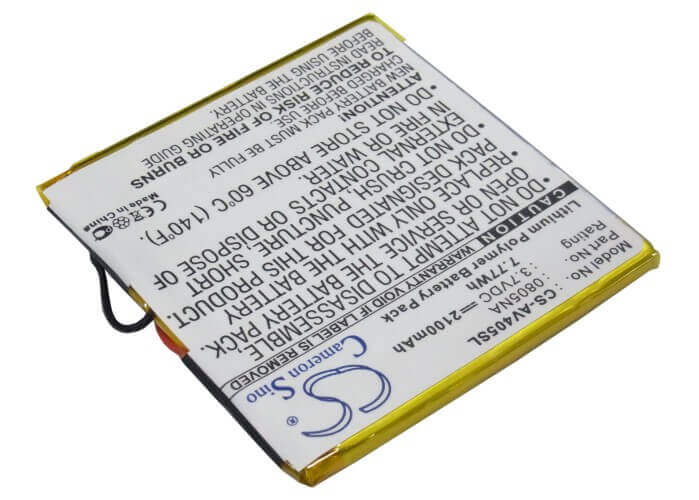 Part No. :CS-AV405SL
Model No. :0805NA
Rating :3.7VDC ⎓ 2100mAh
7.77Wh
Lithium Polymer Battery Pack
CAUTION:
DO NOT ATTEMPT TO DISASSEMBLE
OPEN OR REPLACE WITH ANOTHER
PACK DESIGNATED FOR USE ONLY.
DO NOT CRUSH, PUNCTURE, SHORT
EXTERNAL CONTACTS OR DISPOSE OF
IN FIRE OR WATER.
DO NOT STORE ABOVE 60°C (140°F).
ATTENTION:
NEW BATTERY PACK MUST BE FULLY
CHARGED BEFORE USE
TO REDUCE RISK OF FIRE OR BURNS
READ INSTRUCTIONS IN OPERATING GUIDE
BEFORE USING THE BATTERY.
CE
Made in China
CS
Cameron Sino